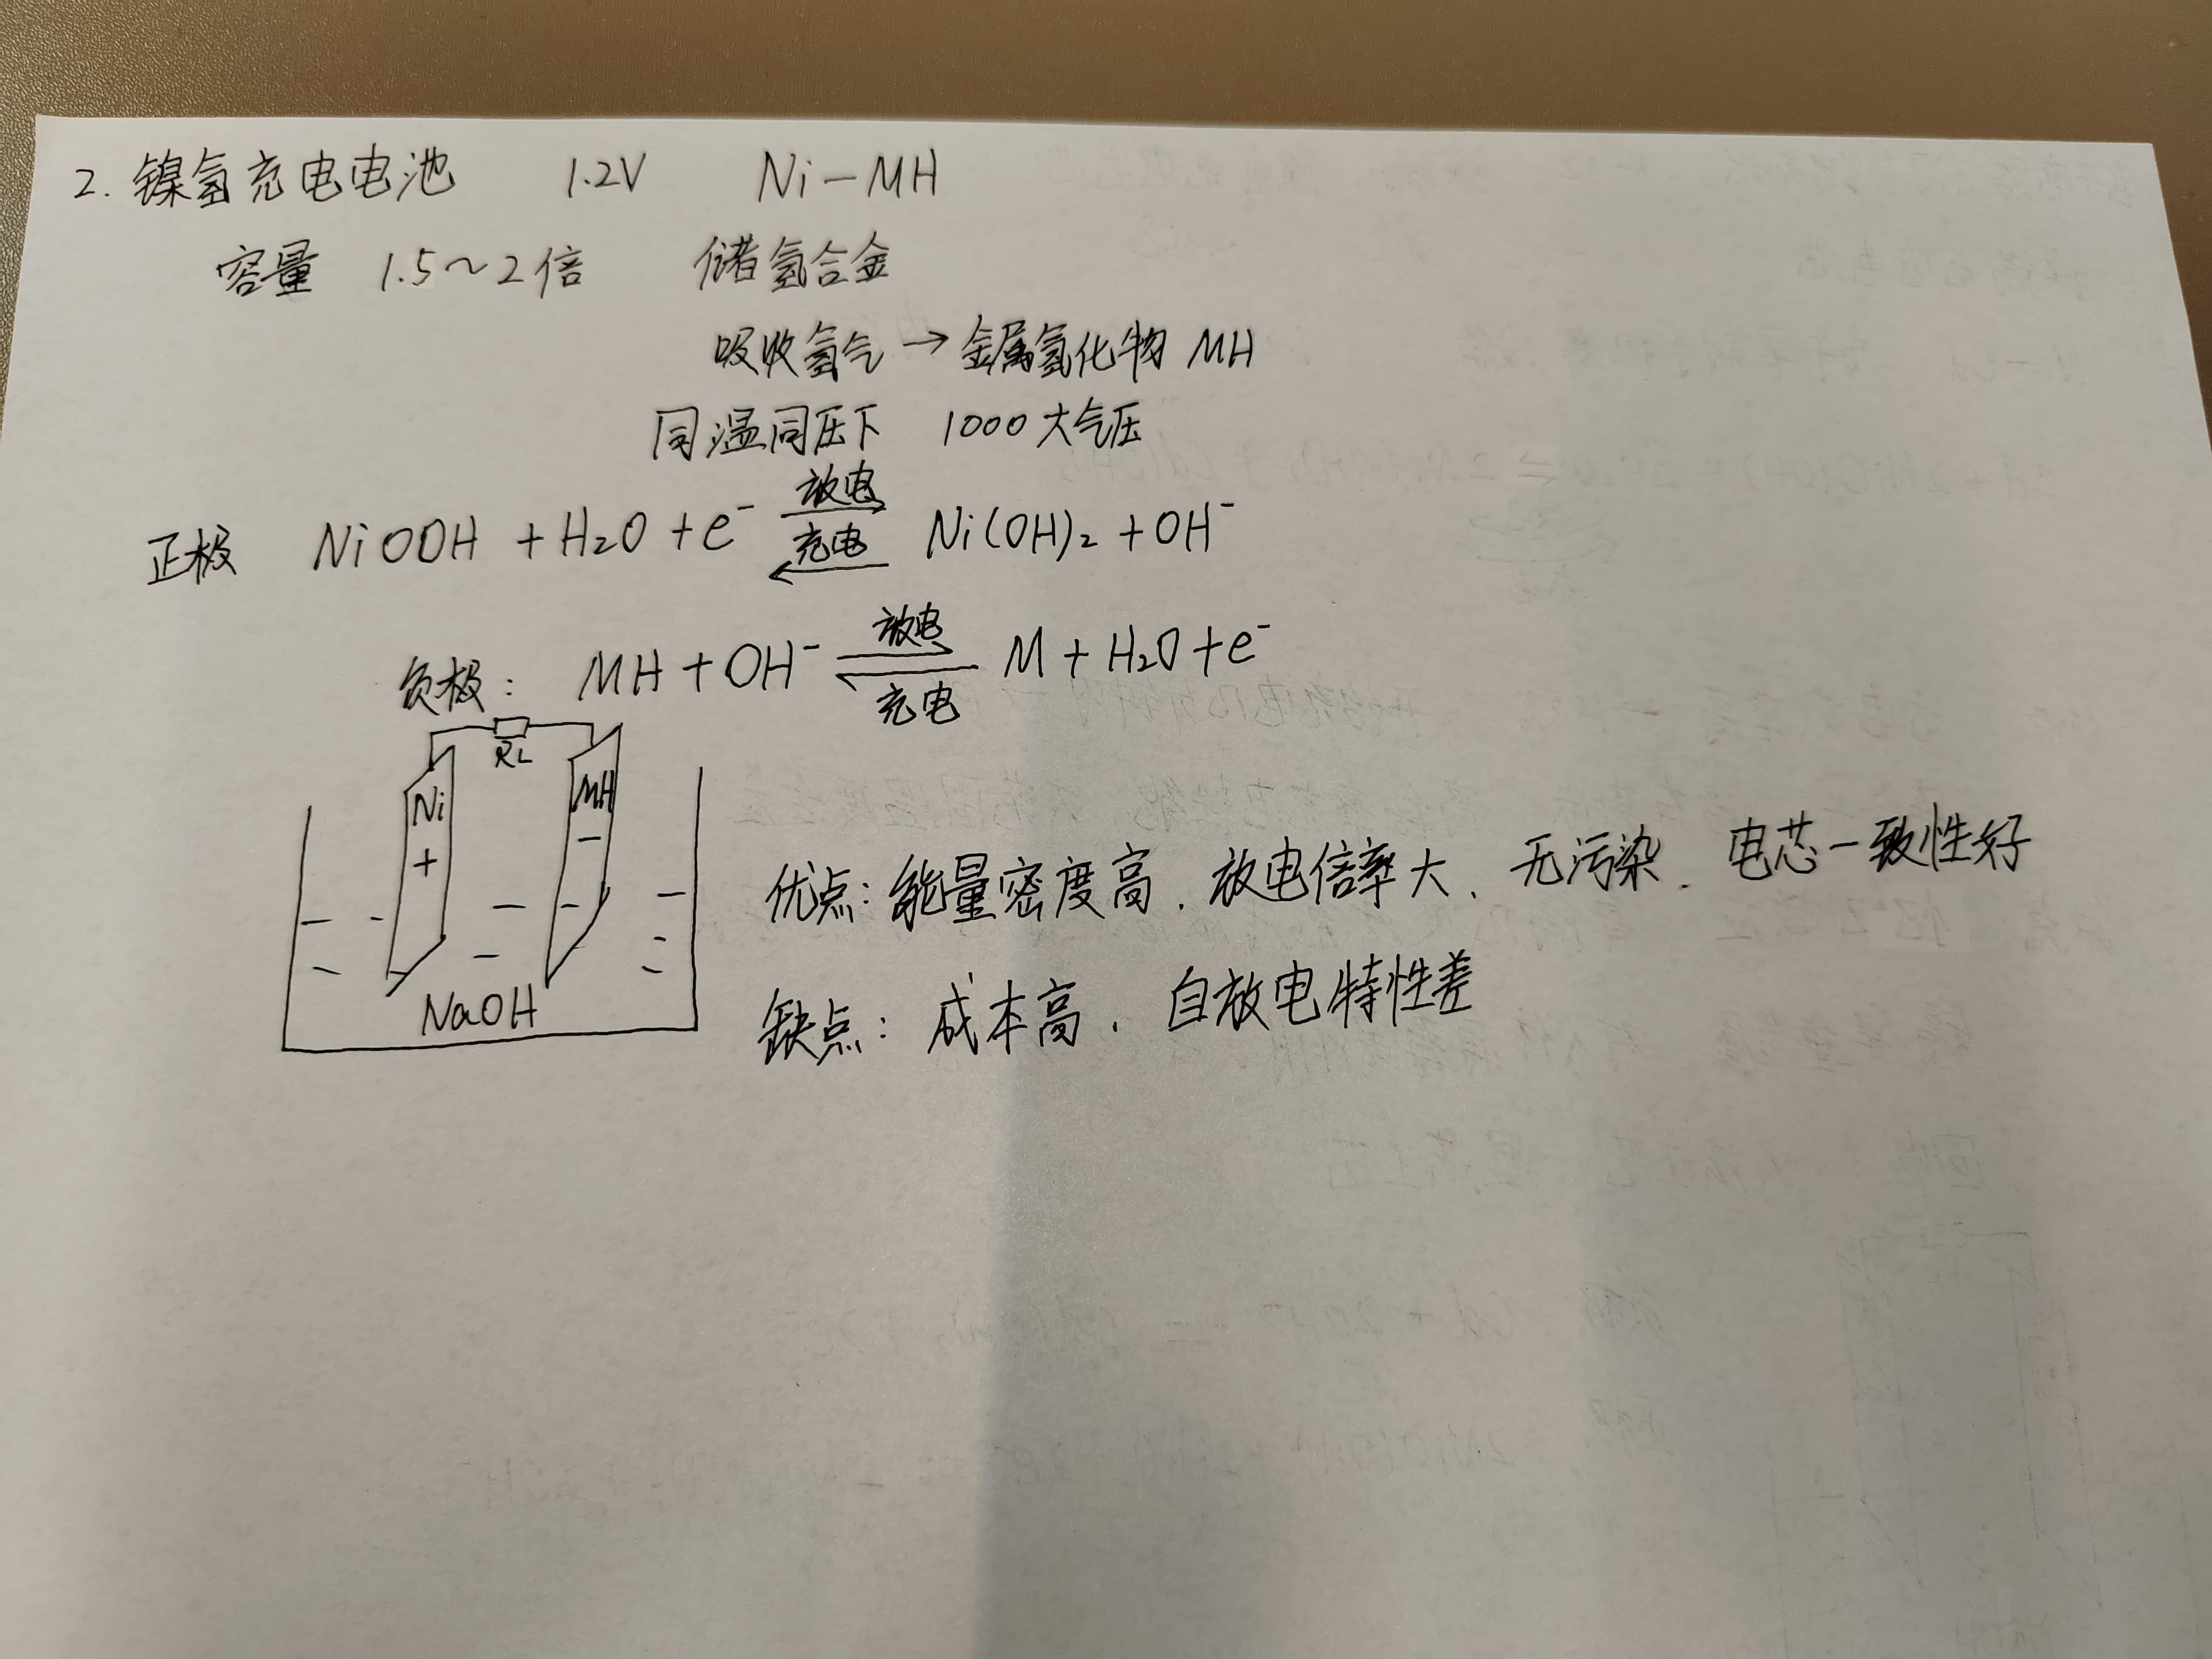 2. 镍氢充电电池 1.2V Ni-MH
容量 1.5~2倍 储氢合金
吸收氢气 → 金属氢化物 MH
同温同压下 1000大气压
放电
正极 NiOOH + H₂O + e⁻ ⇌ Ni(OH)₂ + OH⁻
充电
放电
负极: MH + OH⁻ ⇌ M + H₂O + e⁻
充电
RL
Ni
+
MH
-
NaOH
优点: 能量密度高、放电倍率大、无污染、电芯一致性好
缺点: 成本高、自放电特性差